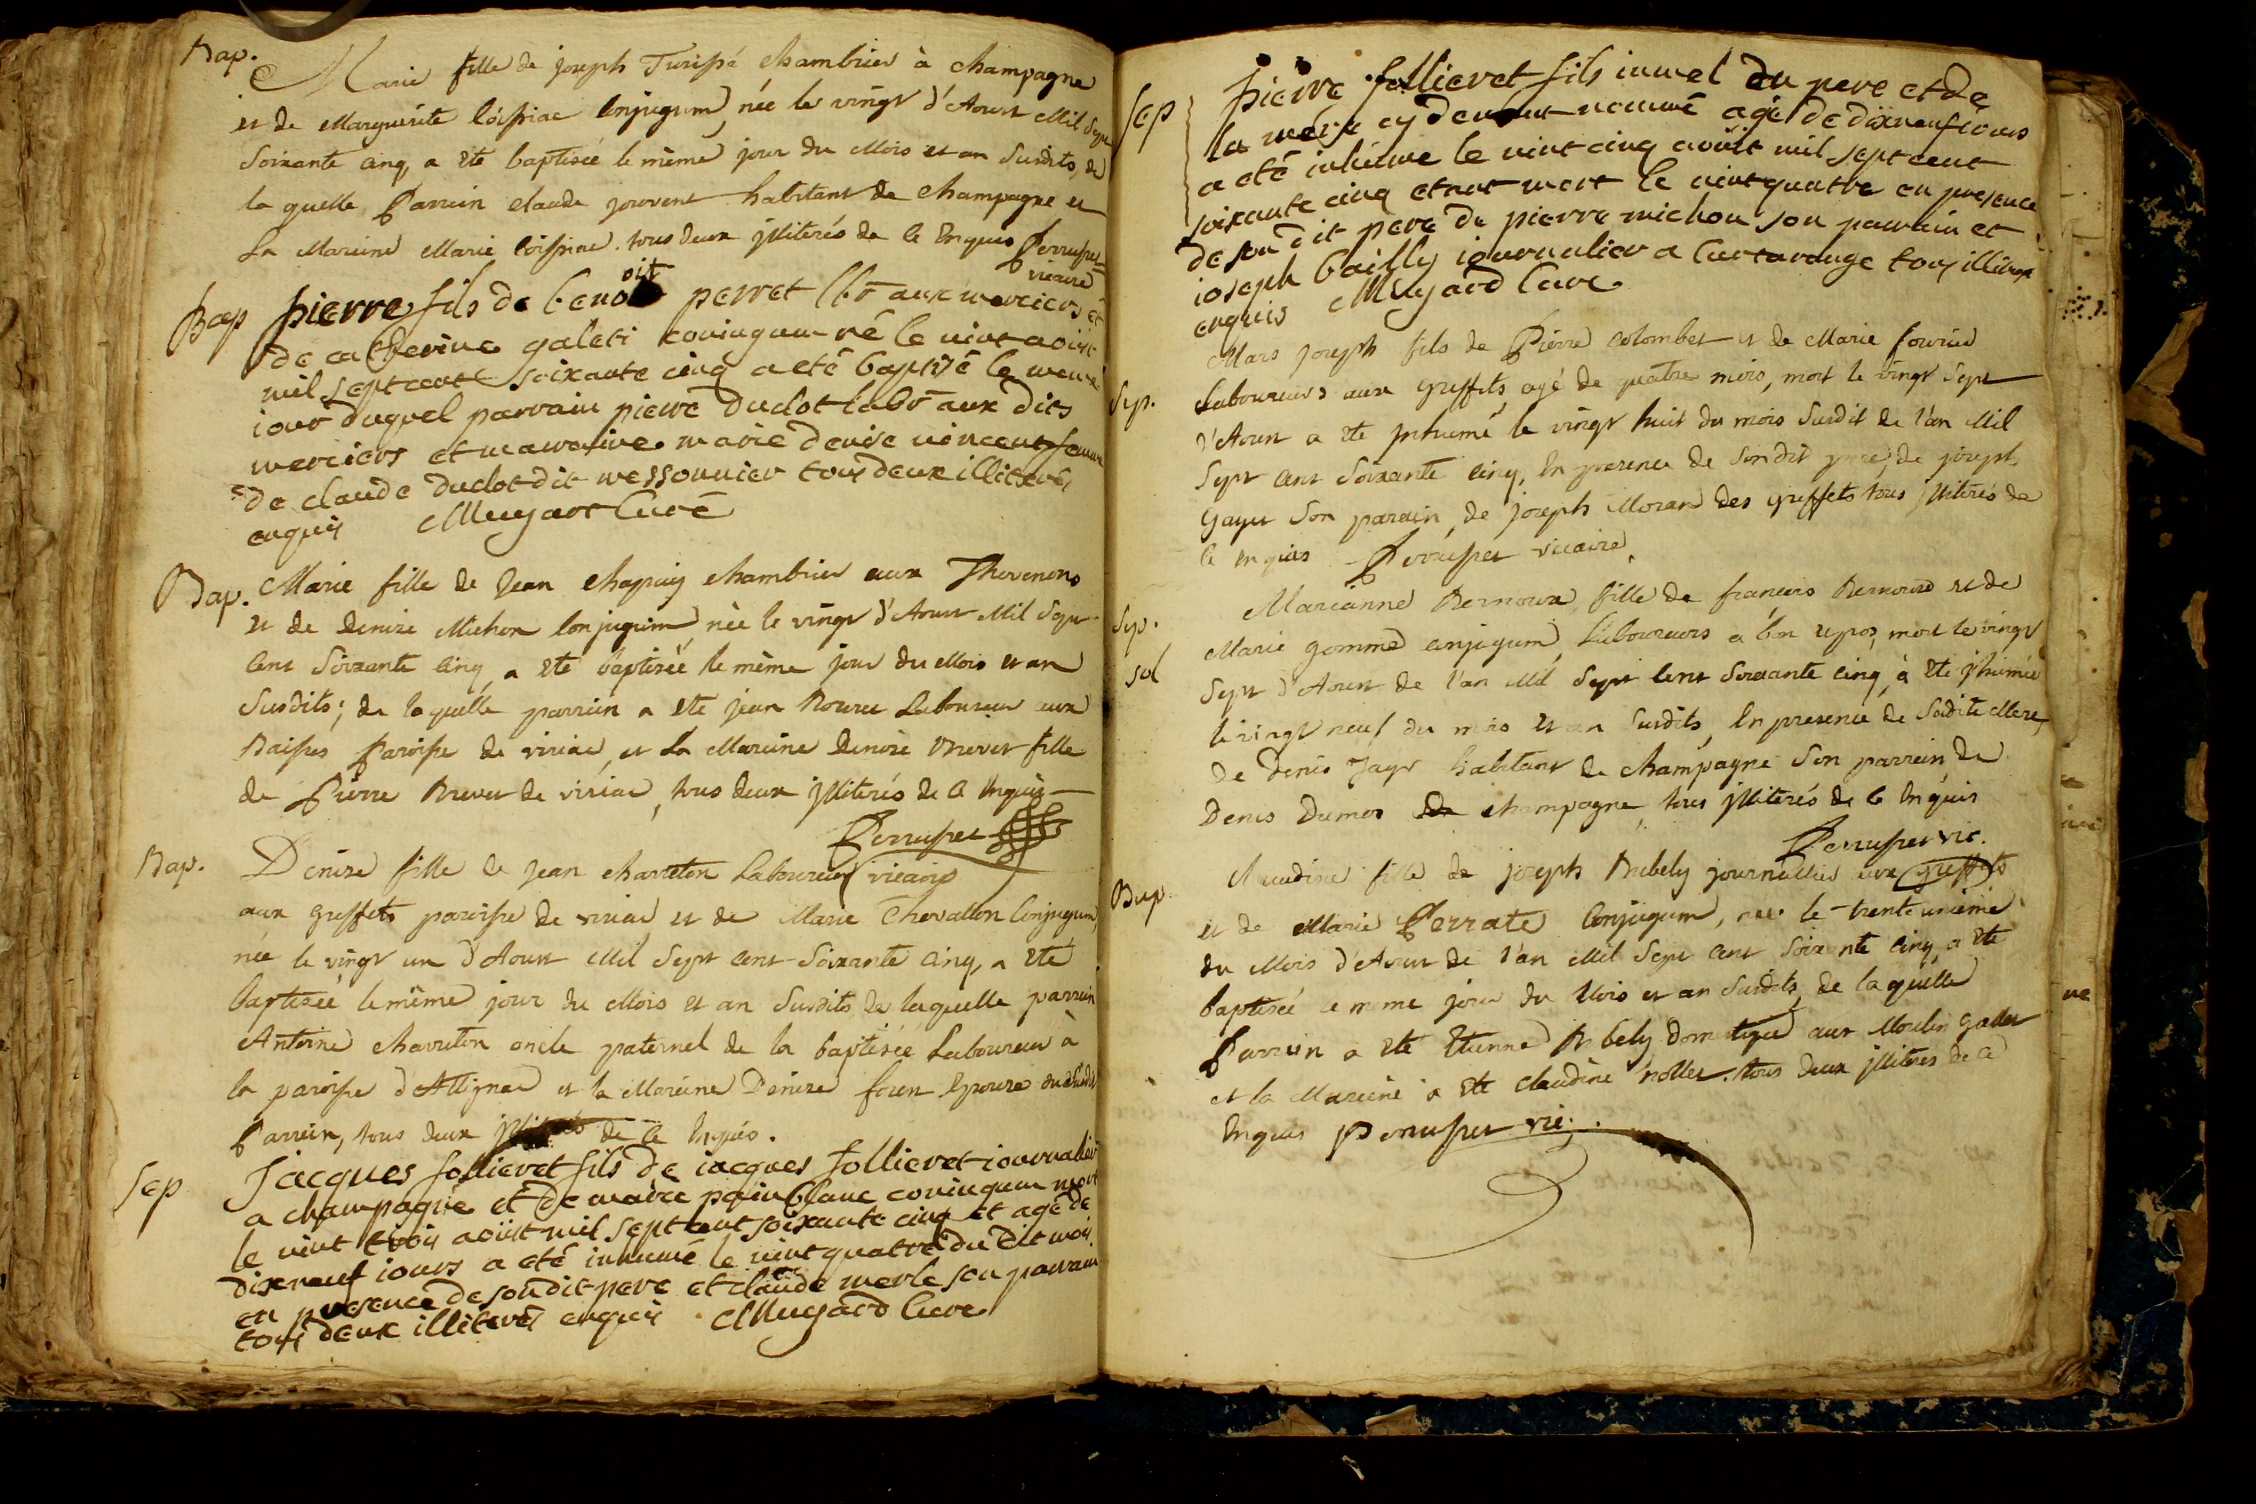 Bap. Marie fille de joseph Turissé chambrier à champagne
et de Marguerite loissiac Conjugum, née le vingt d'Aoust Mil Sept
Soixante cinq, a eté baptisée le même jour du Mois et an Susdits, de
la quelle Parrein claude jouvent habitant de champagne et
La Mareine Marie loissiac tous deux jlliterés de ce Enquis Perrusset
vicaire
Bap pierre fils de benoit perret lbr aux merciers et
de catherine galeti coniugum né le vint aoüt
mil septcent soixante cinq a eté baptisé le meme
iour duquel parrain pierre duclot labr aux dits
merciers et marraine marie denise vincent femme
de claude duclot dit messonnier tous deux illiterés
enquis Mugard Curé
Bap. Marie fille de Jean chapuis chambrier aux Thevenons
et de Denise Michon Conjugum, née le vingt d'Aoust Mil Sept
Cent Soixante Cinq, a eté baptisée le même jour du Mois et an
Susdits; de laquelle parrein a eté jean Rouvee Laboureur aux
Baisses Paroisse de viriac, et la Mareine denise Brevet fille
de Pierre Brevet de viriac, tous deux jlliterés de ce Enquis
Perrusset
Bap. Denise fille de Jean charreton Laboureur vicaire
aux greffets paroisse de viriac et de Marie Chevallon Conjugum,
née le vingt un d'Aoust Mil Sept Cent Soixante Cinq, a eté
baptisée le même jour du Mois et an Susdits de laquelle parrein
Antoine charreton oncle paternel de la baptisée Laboureur à
la paroisse d'Attignac et la Mareine Denise foren Epouse du Susdit
Parrein, tous deux jlliterés de ce Enquis.
Sep Jacques follieret fils de iacques follieret iournalier
a champagne et de marie painblanc coniugum mort
le vint trois aoüst mil septcent soixante cinq et agé de
dixneuf iours a eté inhumé le vintquatre du dit mois
en presence de son dit pere et claude merle son parrain
tous deux illiterés enquis Mugard Curé
Sep pierre follieret fils iumel du pere et de
la mere cy devant nommé agé de dixneuf iours
a eté inhumé le vint cinq aoüt mil septcent
soixante cinq etant mort le vintquatre en presence
de son dit pere de pierre michon son parrain et
ioseph bailly iournalier a Curtarenge tous illiterés
enquis Mugard Curé
Marc joseph fils de Pierre colombet et de Marie fourier
Sep. Laboureurs aux greffets, agé de quatre mois, mort le vingt Sept
d'Aoust a eté jnhumé le vingt huit du mois Susdit de l'an Mil
Sept Cent Soixante Cinq, En presence de Sondit pere, de joseph
gayet Son parrein, de joseph Moran des greffets tous jlliterés de
ce Enquis Perrusset vicaire.
Sep. Marianne Bernoux, fille de francois Bernoux et de
Marie gomme conjugum, Laboureurs a bon repos, mort le vingt
sol Sept d'Aoust de l'an Mil Sept Cent Soixante Cinq, à eté jnhumée
le vingt neuf du mois et an Susdits, En presence de Sadite Mere,
de Denis Jayr habitant de champagne Son parrein, de
Denis Dumas de champagne, tous jlliterés de ce Enquis
Perrusset vic.
Bap. Claudine fille de joseph Bubely journallier aux greffets
et de Marie Perrate Conjugum, née le trente unieme
du Mois d'Aoust de l'an Mil Sept Cent Soixante Cinq, a eté
baptisée le même jour du Mois et an Susdits, de laquelle
Parrein a eté Etienne Bubely domestique aux Moulin gallet
et la Mareine a eté claudine nollet tous deux jlliterés de ce
Enquis Perrusset vic.